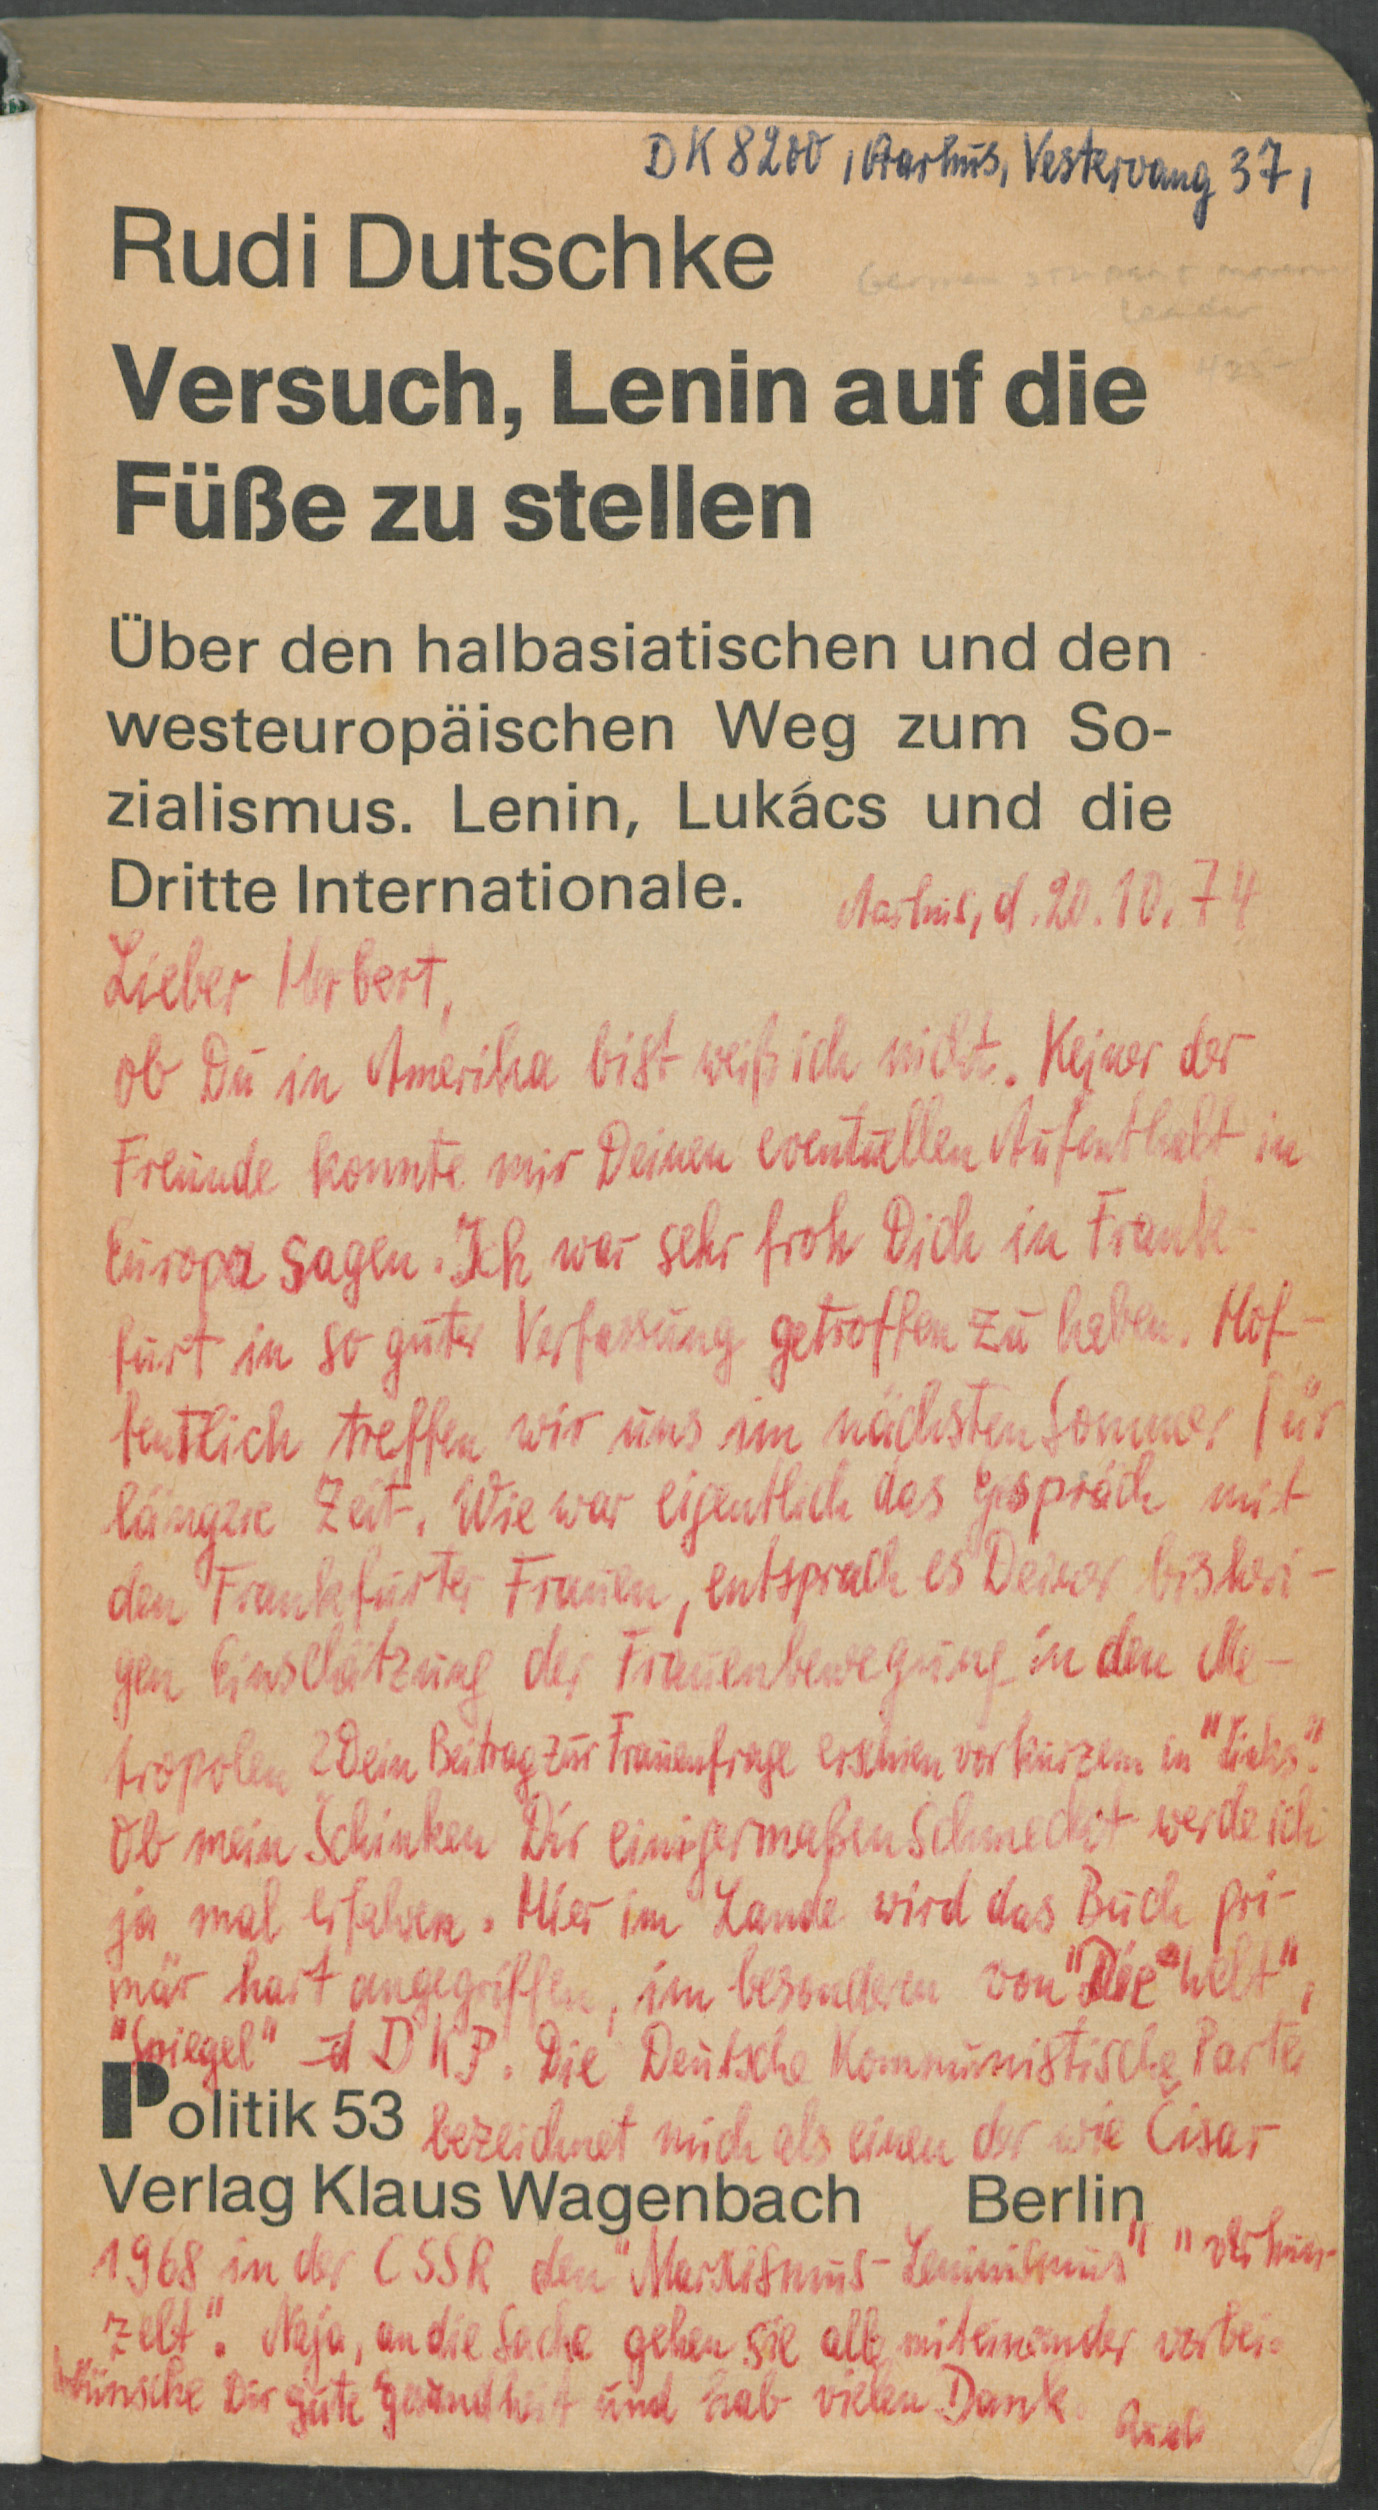 DK 8200, Aarhus, Vestervang 37,
Rudi Dutschke
German student movem
leader
Versuch, Lenin auf die
425-
Füße zu stellen
Über den halbasiatischen und den
westeuropäischen Weg zum So-
zialismus. Lenin, Lukács und die
Dritte Internationale.
Aarhus, d. 20.10.74
Lieber Herbert,
ob Du in Amerika bist weiß ich nicht. Keiner der
Freunde konnte mir Deinen eventuellen Aufenthalt in
Europa sagen. Ich war sehr froh Dich in Frank-
furt in so guter Verfassung getroffen zu haben. Hof-
fentlich treffen wir uns im nächsten Sommer für
längere Zeit. Wie war eigentlich das Gespräch mit
den Frankfurter Frauen, entsprach es Deiner bisheri-
gen Einschätzung der Frauenbewegung in den Me-
tropolen? Dein Beitrag zur Frauenfrage erschien vor kurzem in "Links".
Ob mein Schinken Dir einigermaßen schmeckt werde ich
ja mal erfahren. Hier im Lande wird das Buch pri-
mär hart angegriffen, im besonderen von "Die Welt",
"Spiegel" DKP. Die Deutsche Kommunistische Partei
Politik 53
bezeichnet mich als einen der wie Čisar
Verlag Klaus Wagenbach Berlin
1968 in der CSSR den "Marxismus-Leninismus" "verhun-
zelt". Naja, an die Sache gehen sie alle miteinander vorbei.
Wünsche Dir gute Gesundheit und hab vielen Dank.
Rudi